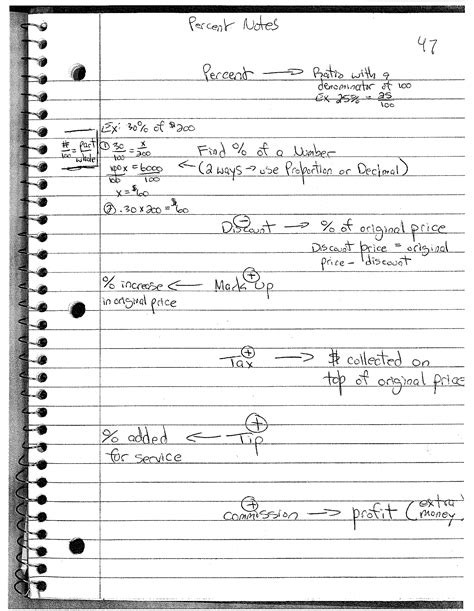 Percent Notes
47
Percent → Ratio with a
denominator of 100
Ex. 25% = 25/100
Ex: 30% of $200
#/100 = part/whole
① 30/100 = x/200
100x/100 = 6000/100
x = $60
② .30 x 200 = $60
Find % of a Number
← (2 ways → use Proportion or Decimal)
Discount ⊖ → % of original price
Discount price = original
price - discount
% increase ← Mark Up ⊕
in original price
Tax ⊕ → $ collected on
top of original price
% added ← Tip ⊕
for service
commission ⊕ → profit (extra
money,